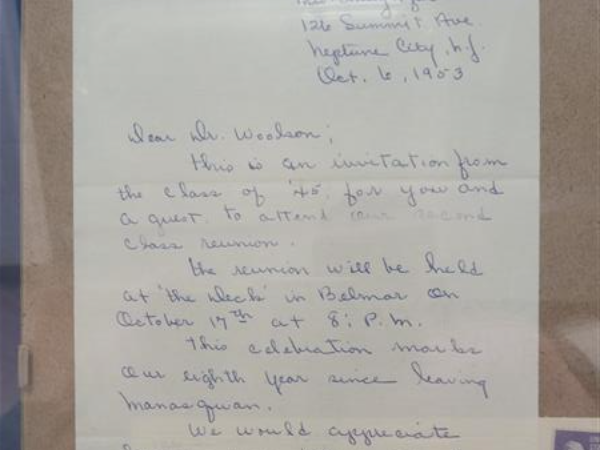 126 Summit Ave.
Neptune City, N.J.
Oct. 6, 1953
Dear Dr. Woolson;
This is an invitation from
the class of '45, for you and
a guest to attend our second
class reunion.
The reunion will be held
at 'The Deck' in Belmar on
October 17th at 8: P.M.
This celebration marks
our eighth year since leaving
Manasquan.
We would appreciate